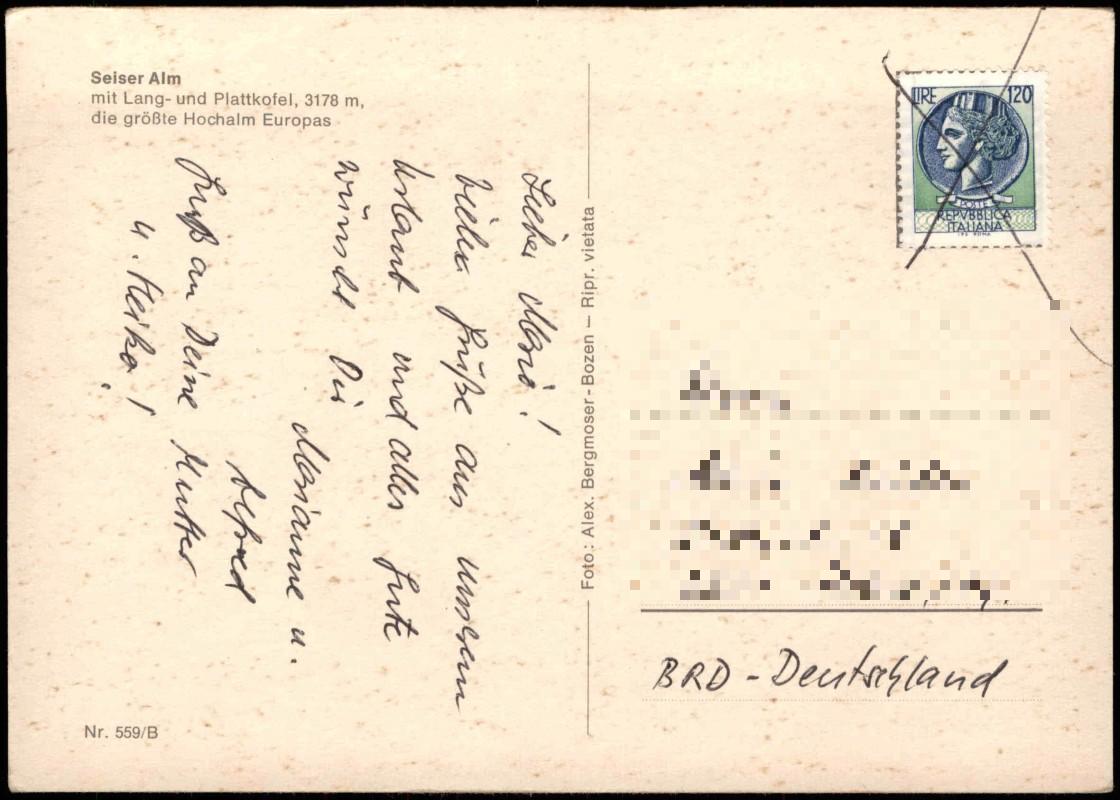 Seiser Alm
mit Lang- und Plattkofel, 3178 m,
die größte Hochalm Europas
Liebe
viele Grüße aus unserem
Urlaub und alles Gute
wünscht Dir
Marianne u.
Alfred
Gruß an Deine Mutter
u. Heike!
Nr. 559/B
Foto: Alex. Bergmoser - Bozen — Ripr. vietata
LIRE 120
POSTE
REPVBBLICA
ITALIANA
BRD - Deutschland